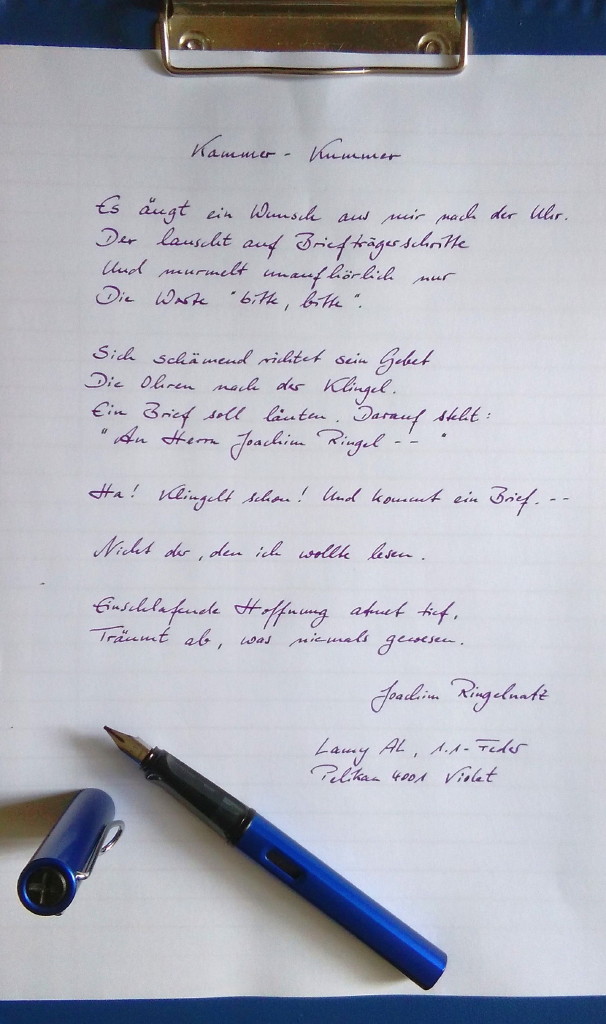 Kammer - Kummer
Es äugt ein Wunsch aus mir nach der Uhr.
Der lauscht auf Briefträgerschritte
Und murmelt unaufhörlich nur
Die Worte "bitte, bitte".
Sich schämend richtet sein Gebet
Die Ohren nach der Klingel.
Ein Brief soll läuten. Darauf steht:
"An Herrn Joachim Ringel -- "
Ha! Klingelt schon! Und kommt ein Brief. --
Nicht der, den ich wollte lesen.
Einschlafende Hoffnung atmet tief,
Träumt ab, was niemals gewesen.
Joachim Ringelnatz
Lamy AL, 1.1-Feder
Pelikan 4001 Violet